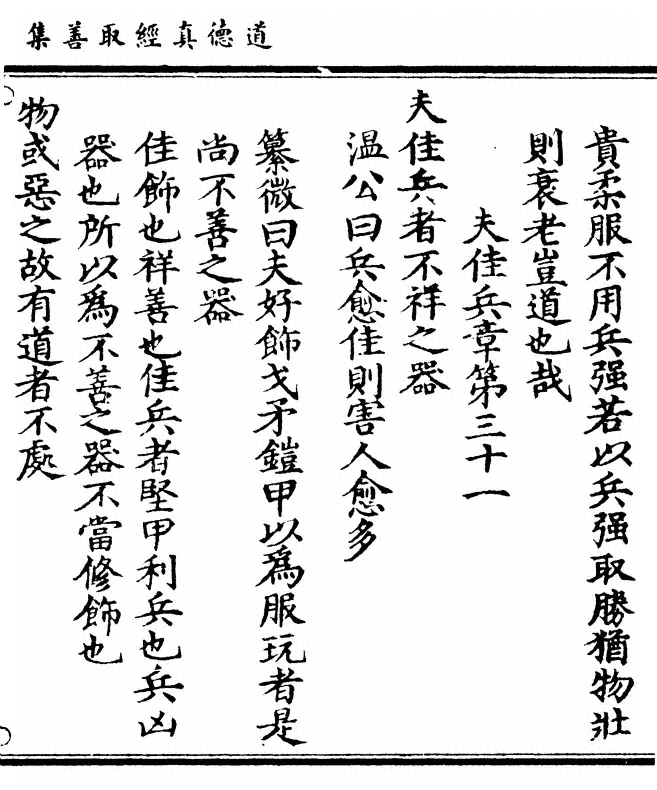 道德真經取善集
貴柔服不用兵强若以兵强取勝猶物壯
則衰老豈道也哉
夫佳兵章第三十一
夫佳兵者不祥之器
温公曰兵愈佳則害人愈多
纂微曰夫好飾戈矛鎧甲以爲服玩者是
尚不善之器
佳飾也祥善也佳兵者堅甲利兵也兵凶
器也所以爲不善之器不當修飾也
物或惡之故有道者不處